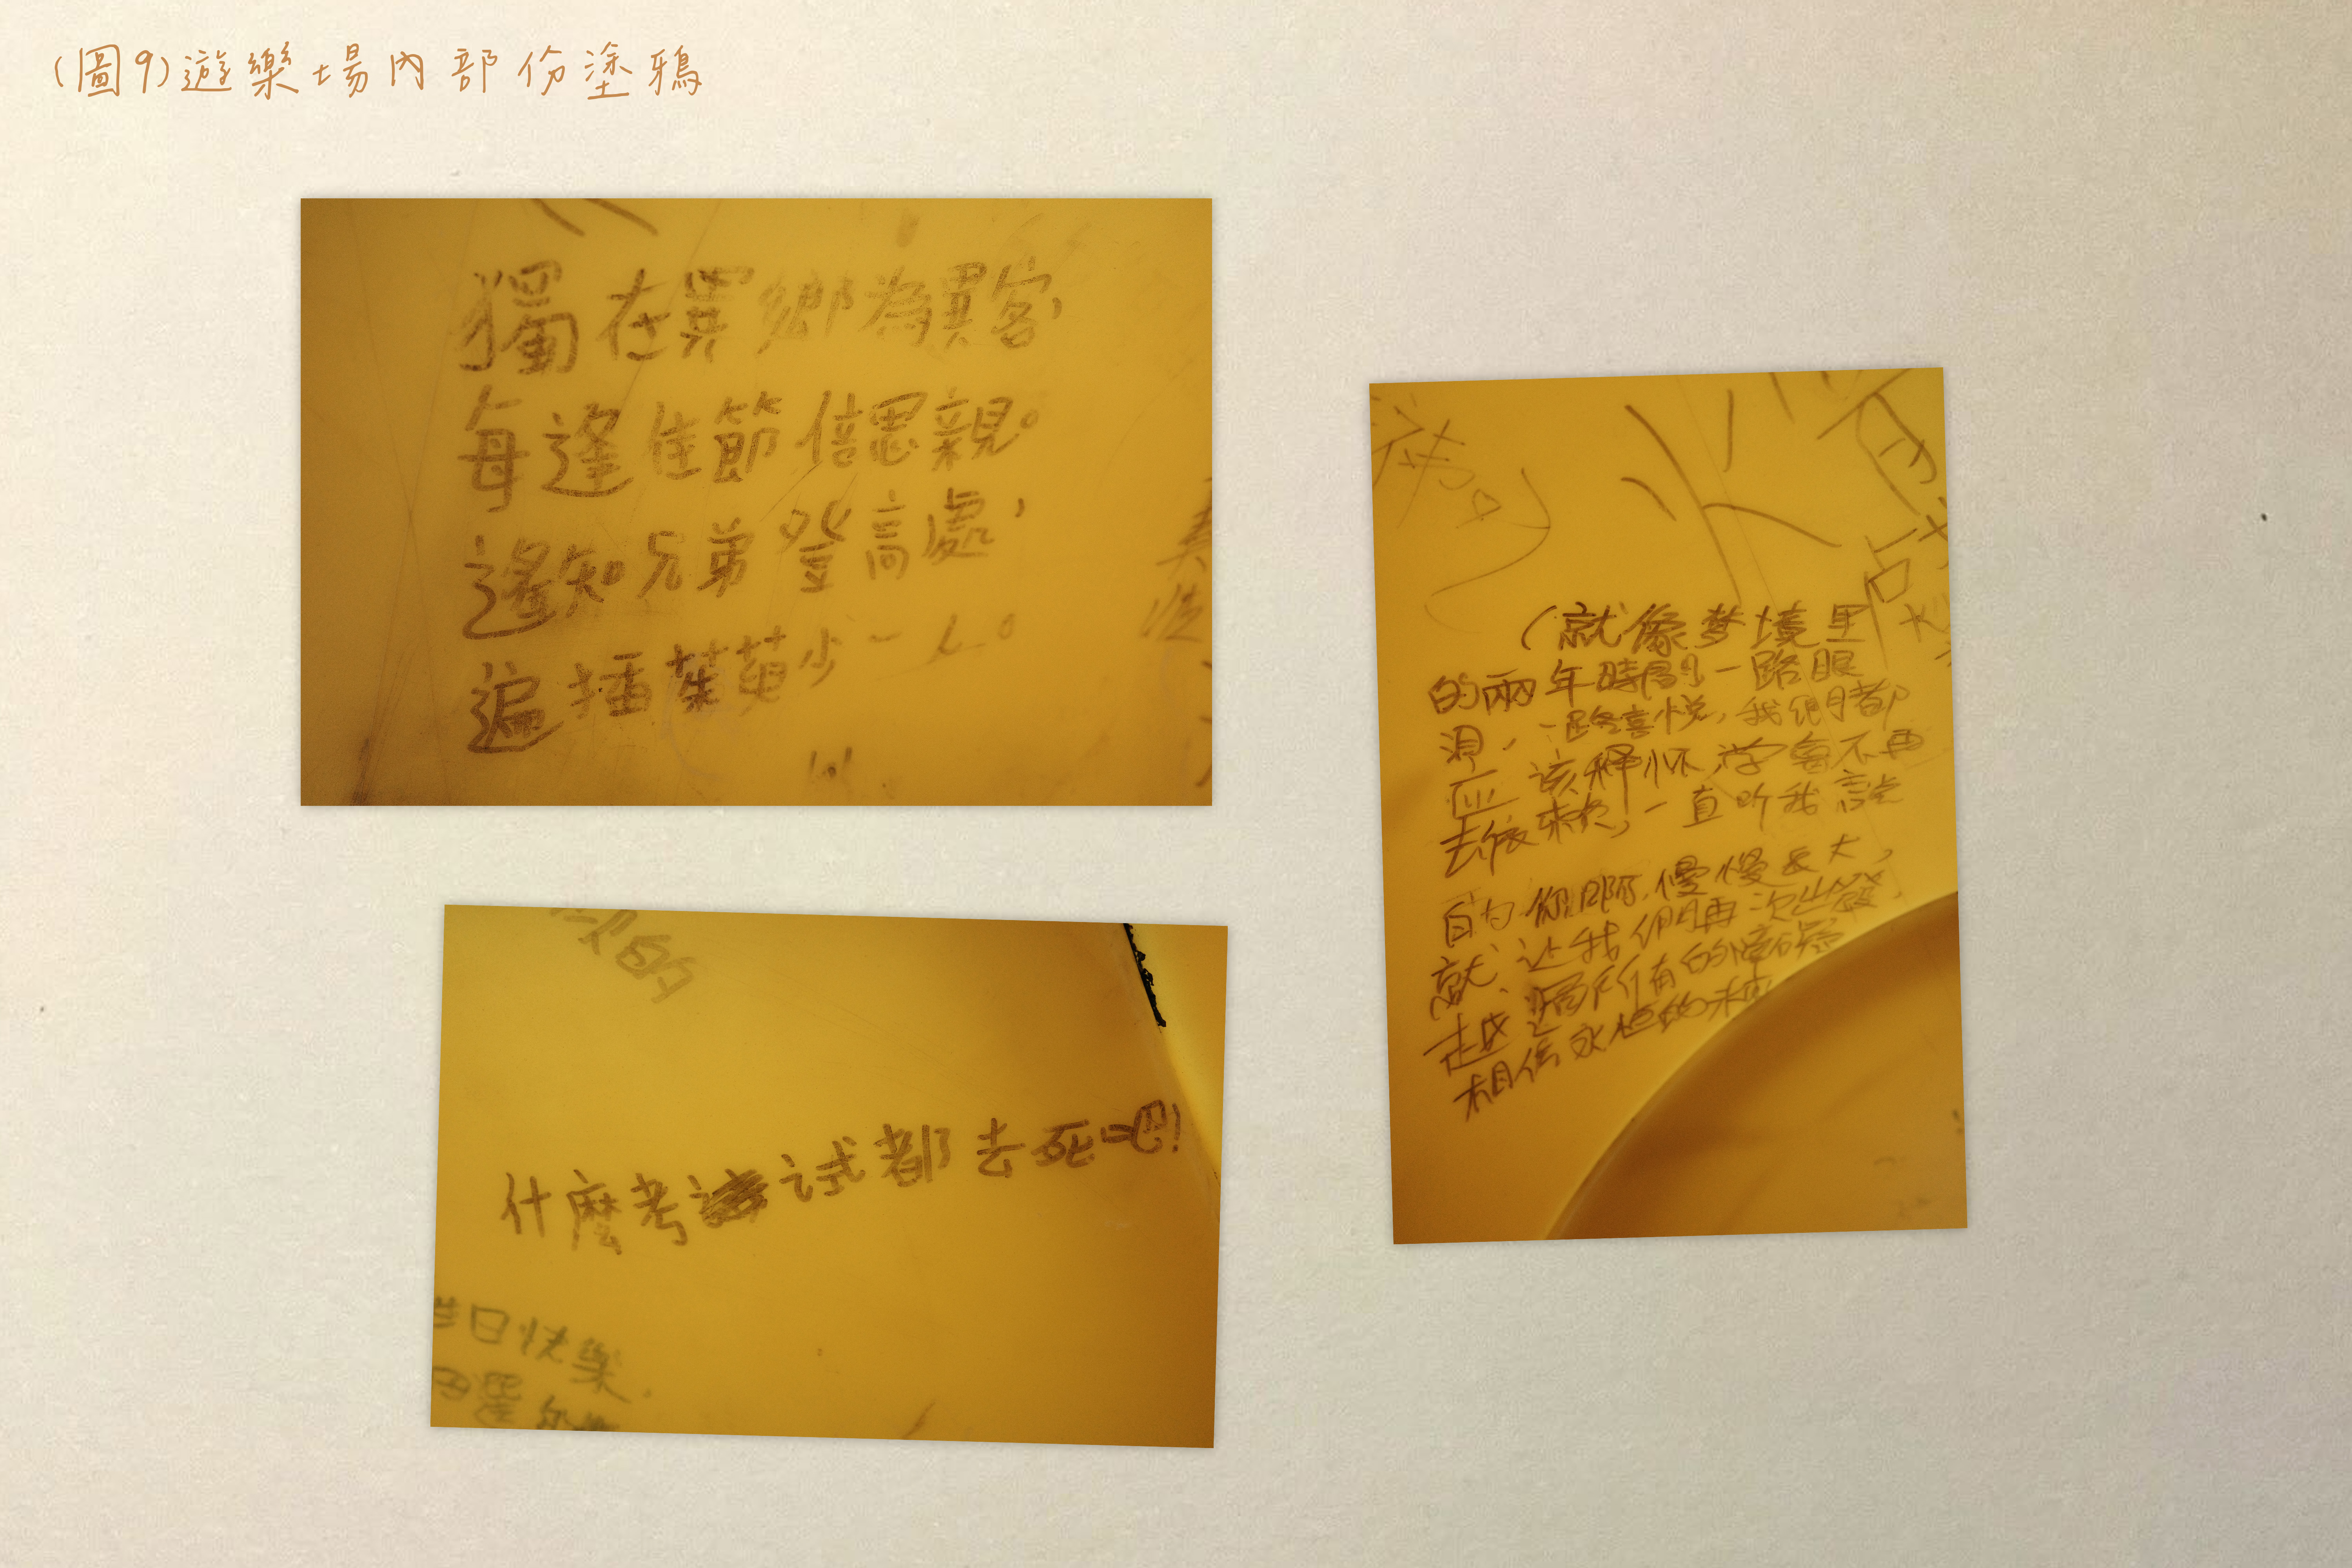 (圖9)遊樂場內部份塗鴉
獨在異鄉為異客，
每逢佳節倍思親。
遙知兄弟登高處，
遍插茱萸少一人。
次的
什麼考試都去死吧!
日快樂.
(就像梦境里
的兩年時間一路眼
泪，一路喜悦，我们都
应该释怀，学會不再
去依赖，一直听我説
的你們，慢慢长大，
就让我们再一次出發，
越過所有的障碍
相信永恒的